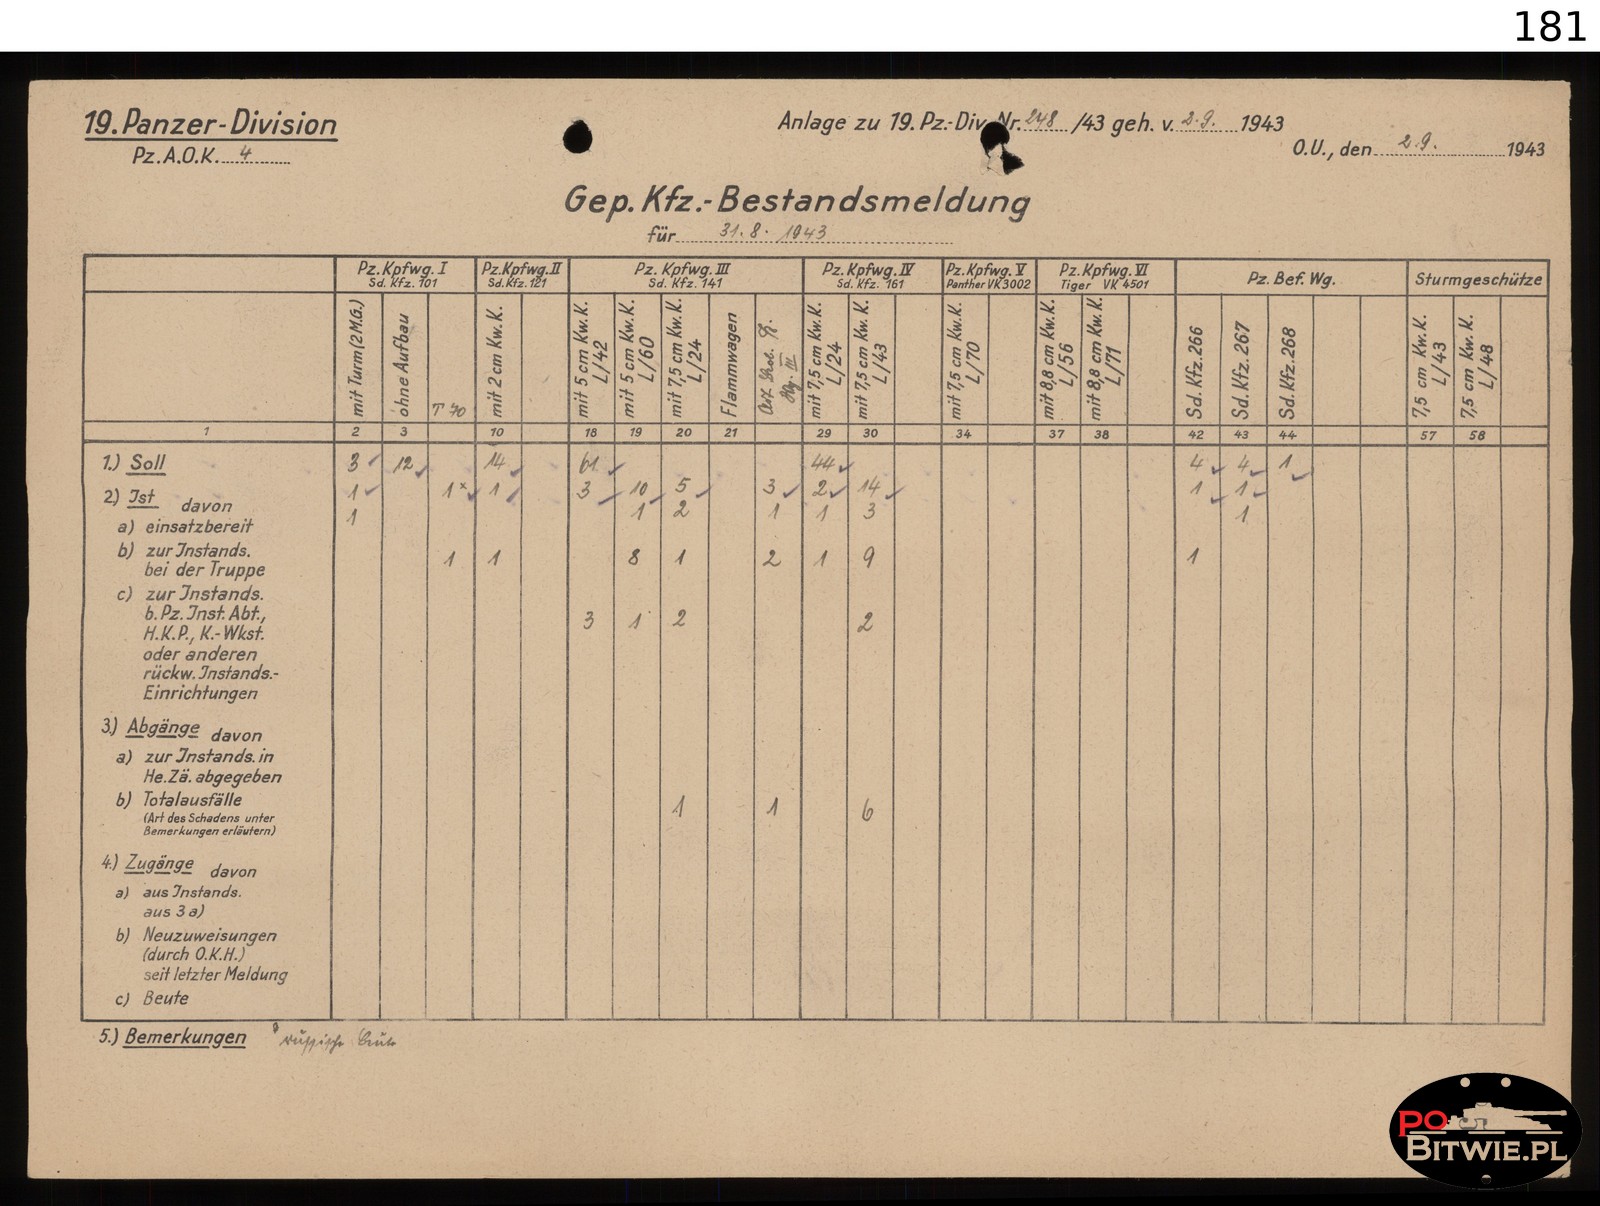 181
19. Panzer-Division
Anlage zu 19. Pz.-Div. Nr. 248 /43 geh. v. 2.9. 1943
Pz. A.O.K. 4
O.U., den 2.9. 1943
Gep. Kfz.-Bestandsmeldung
für 31.8. 1943
Pz. Kpfwg. I Pz. Kpfwg. II Pz. Kpfwg. III Pz. Kpfwg. IV Pz. Kpfwg. V Pz. Kpfwg. VI Pz. Bef. Wg. Sturmgeschütze
Sd. Kfz. 101 Sd. Kfz. 121 Sd. Kfz. 141 Sd. Kfz. 161 Panther VK3002 Tiger VK 4501
mit Turm (2 M.G.)
ohne Aufbau
T 70
mit 2 cm Kw. K.
mit 5 cm Kw. K.
L/42
mit 5 cm Kw. K.
L/60
mit 7,5 cm Kw. K.
L/24
Flammwagen
mit 7,5 cm Kw. K.
L/24
mit 7,5 cm Kw. K.
L/43
mit 7,5 cm Kw. K.
L/70
mit 8,8 cm Kw. K.
L/56
mit 8,8 cm Kw. K.
L/71
Sd. Kfz. 266
Sd. Kfz. 267
Sd. Kfz. 268
7,5 cm Kw. K.
L/43
7,5 cm Kw. K.
L/48
1 2 3 10 18 19 20 21 29 30 34 37 38 42 43 44 57 58
1.) Soll 3 12 14 61 44 4 4 1
2.) Ist davon 1 1x 1 3 10 5 3 2 14 1 1
a) einsatzbereit 1 1 2 1 1 3 1
b) zur Instands.
bei der Truppe 1 1 8 1 2 1 9 1
c) zur Instands.
b. Pz. Inst. Abt., 3 1 2 2
H.K.P., K.-Wkst.
oder anderen
rückw. Instands.-
Einrichtungen
3.) Abgänge davon
a) zur Instands. in
He. Zä. abgegeben
b) Totalausfälle 1 1 6
(Art des Schadens unter
Bemerkungen erläutern)
4.) Zugänge davon
a) aus Instands.
aus 3 a)
b) Neuzuweisungen
(durch O.K.H.)
seit letzter Meldung
c) Beute
5.) Bemerkungen russische Beute
PO
BITWIE.PL